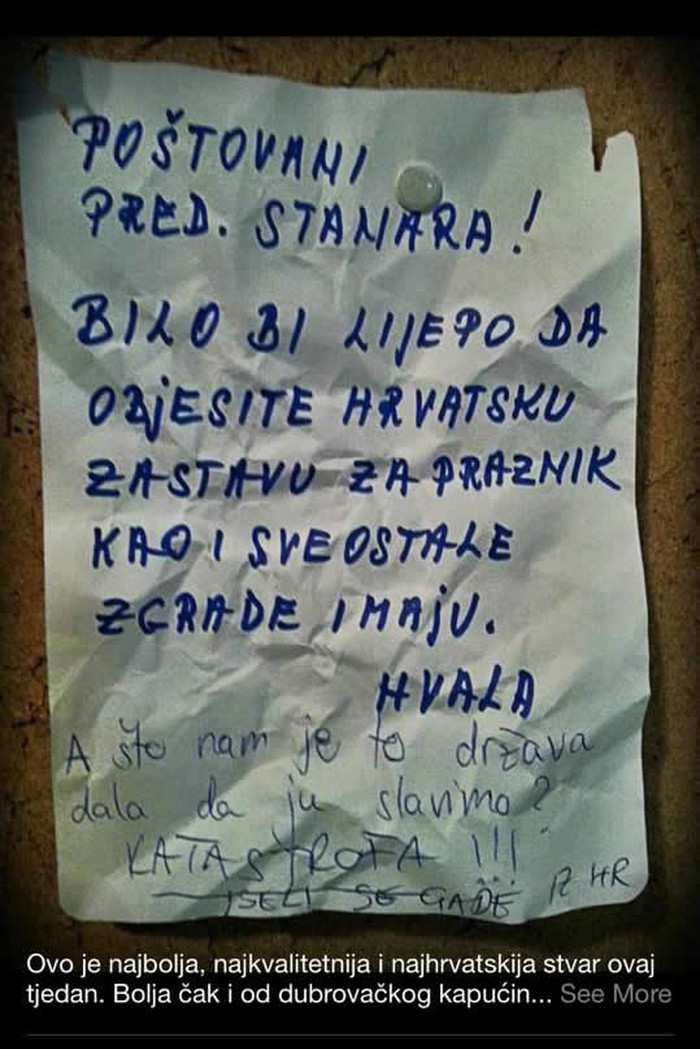 POŠTOVANI
PRED. STANARA!
BILO BI LIJEPO DA
OBJESITE HRVATSKU
ZASTAVU ZA PRAZNIK
KAO I SVE OSTALE
ZGRADE IMAJU.
HVALA
A što nam je to država
dala da ju slavimo?
KATASTROFA !!!
ISELI SE GADE IZ HR
Ovo je najbolja, najkvalitetnija i najhrvatskija stvar ovaj
tjedan. Bolja čak i od dubrovačkog kapućin... See More